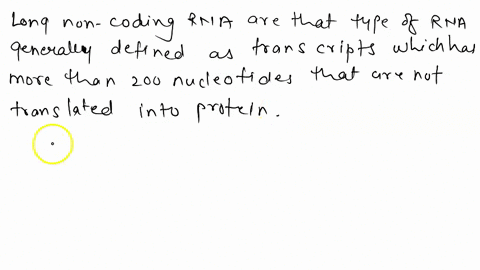 Long non-coding RNA are that type of RNA
generally defined as transcripts which has
more than 200 nucleotides that are not
translated into protein.